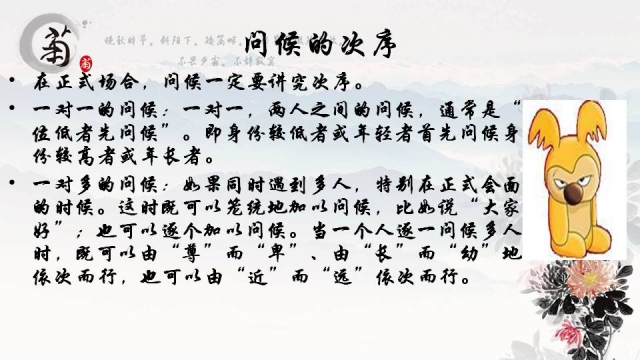 菊
菊
问候的次序
在正式场合，问候一定要讲究次序。
一对一的问候：一对一，两人之间的问候，通常是“
位低者先问候”。即身份较低者或年轻者首先问候身
份较高者或年长者。
一对多的问候：如果同时遇到多人，特别在正式会面
的时候。这时既可以笼统地加以问候，比如说“大家
好”；也可以逐个加以问候。当一个人逐一问候多人
时，既可以由“尊”而“卑”、由“长”而“幼”地
依次而行，也可以由“近”而“远”依次而行。